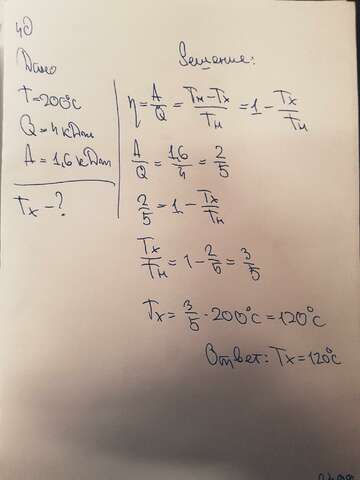 40
Дано
Решение:
T=200°C
Q=4 кДж
A=1,6 кДж
Tx-?
η=A/Q=Tн-Tx/Tн=1-Tx/Tн
A/Q=1,6/4=2/5
2/5=1-Tx/Tн
Tx/Tн=1-2/5=3/5
Tx=3/5·200°C=120°C
Ответ: Tx=120°C